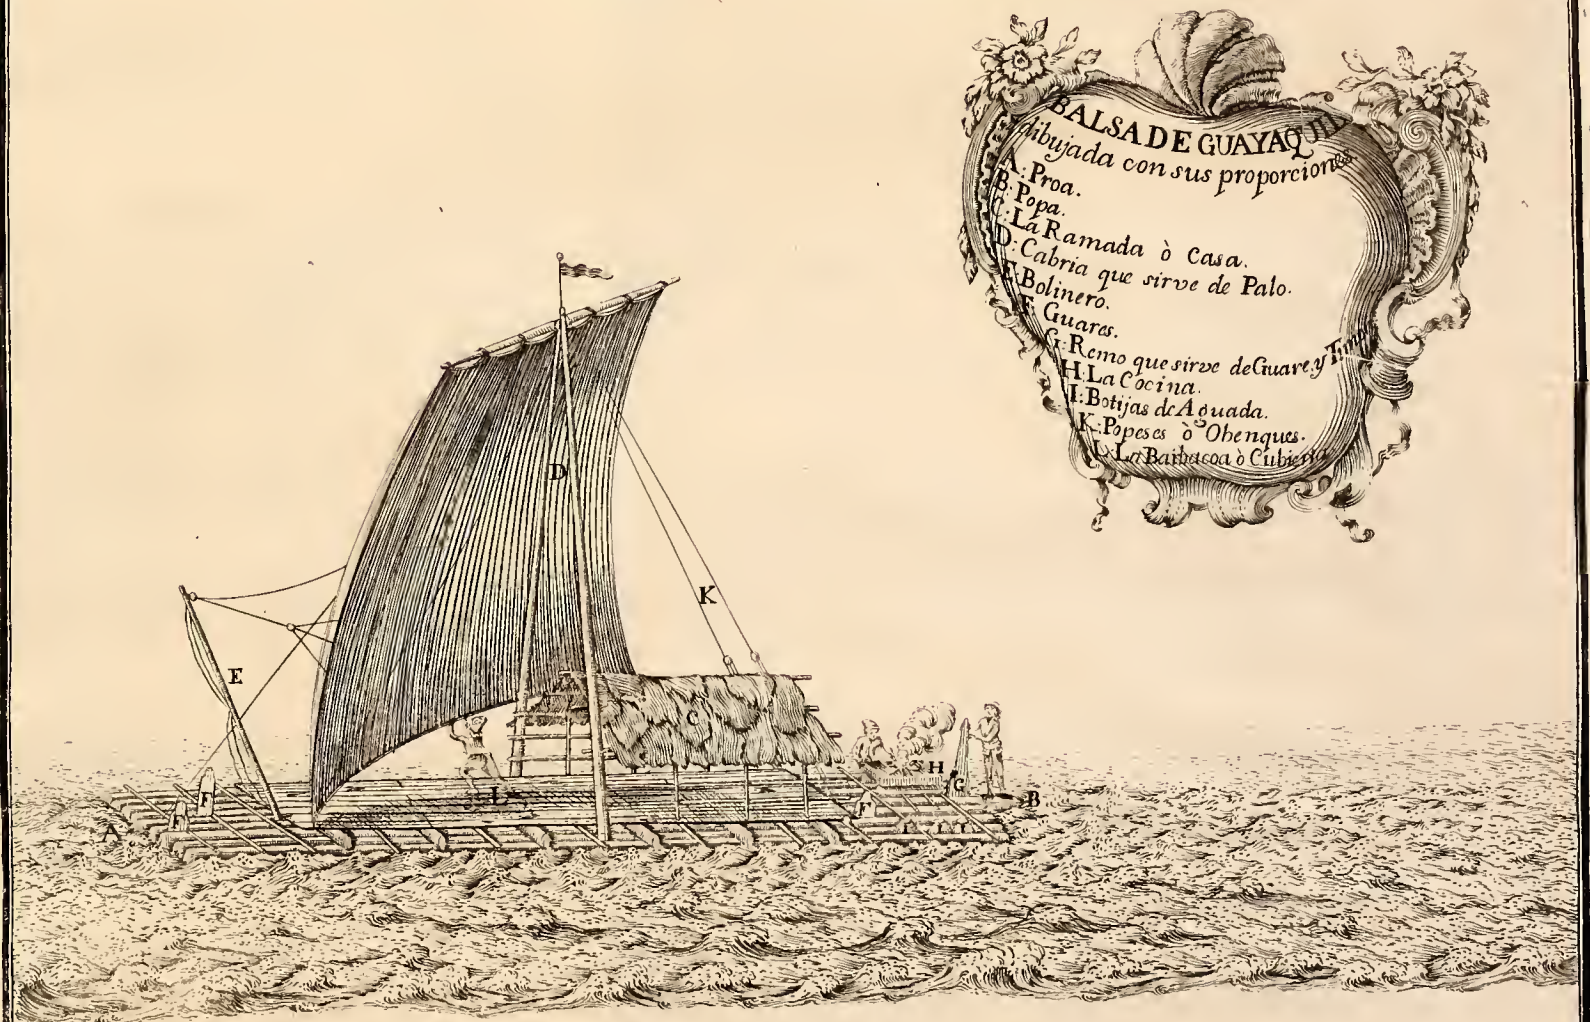 BALSA DE GUAYAQUIL
dibujada con sus proporciones
A: Proa.
B: Popa.
C: La Ramada ò Casa.
D: Cabria que sirve de Palo.
E: Bolinero.
F: Guares.
G: Remo que sirve de Guare, y
H: La Cocina.
I: Botijas de Aguada.
K: Popeses ò Obenques.
L: La Barbacoa ò Cubierta
D
K
E
C
H
G
F
L
B
F
F
A
I I I I